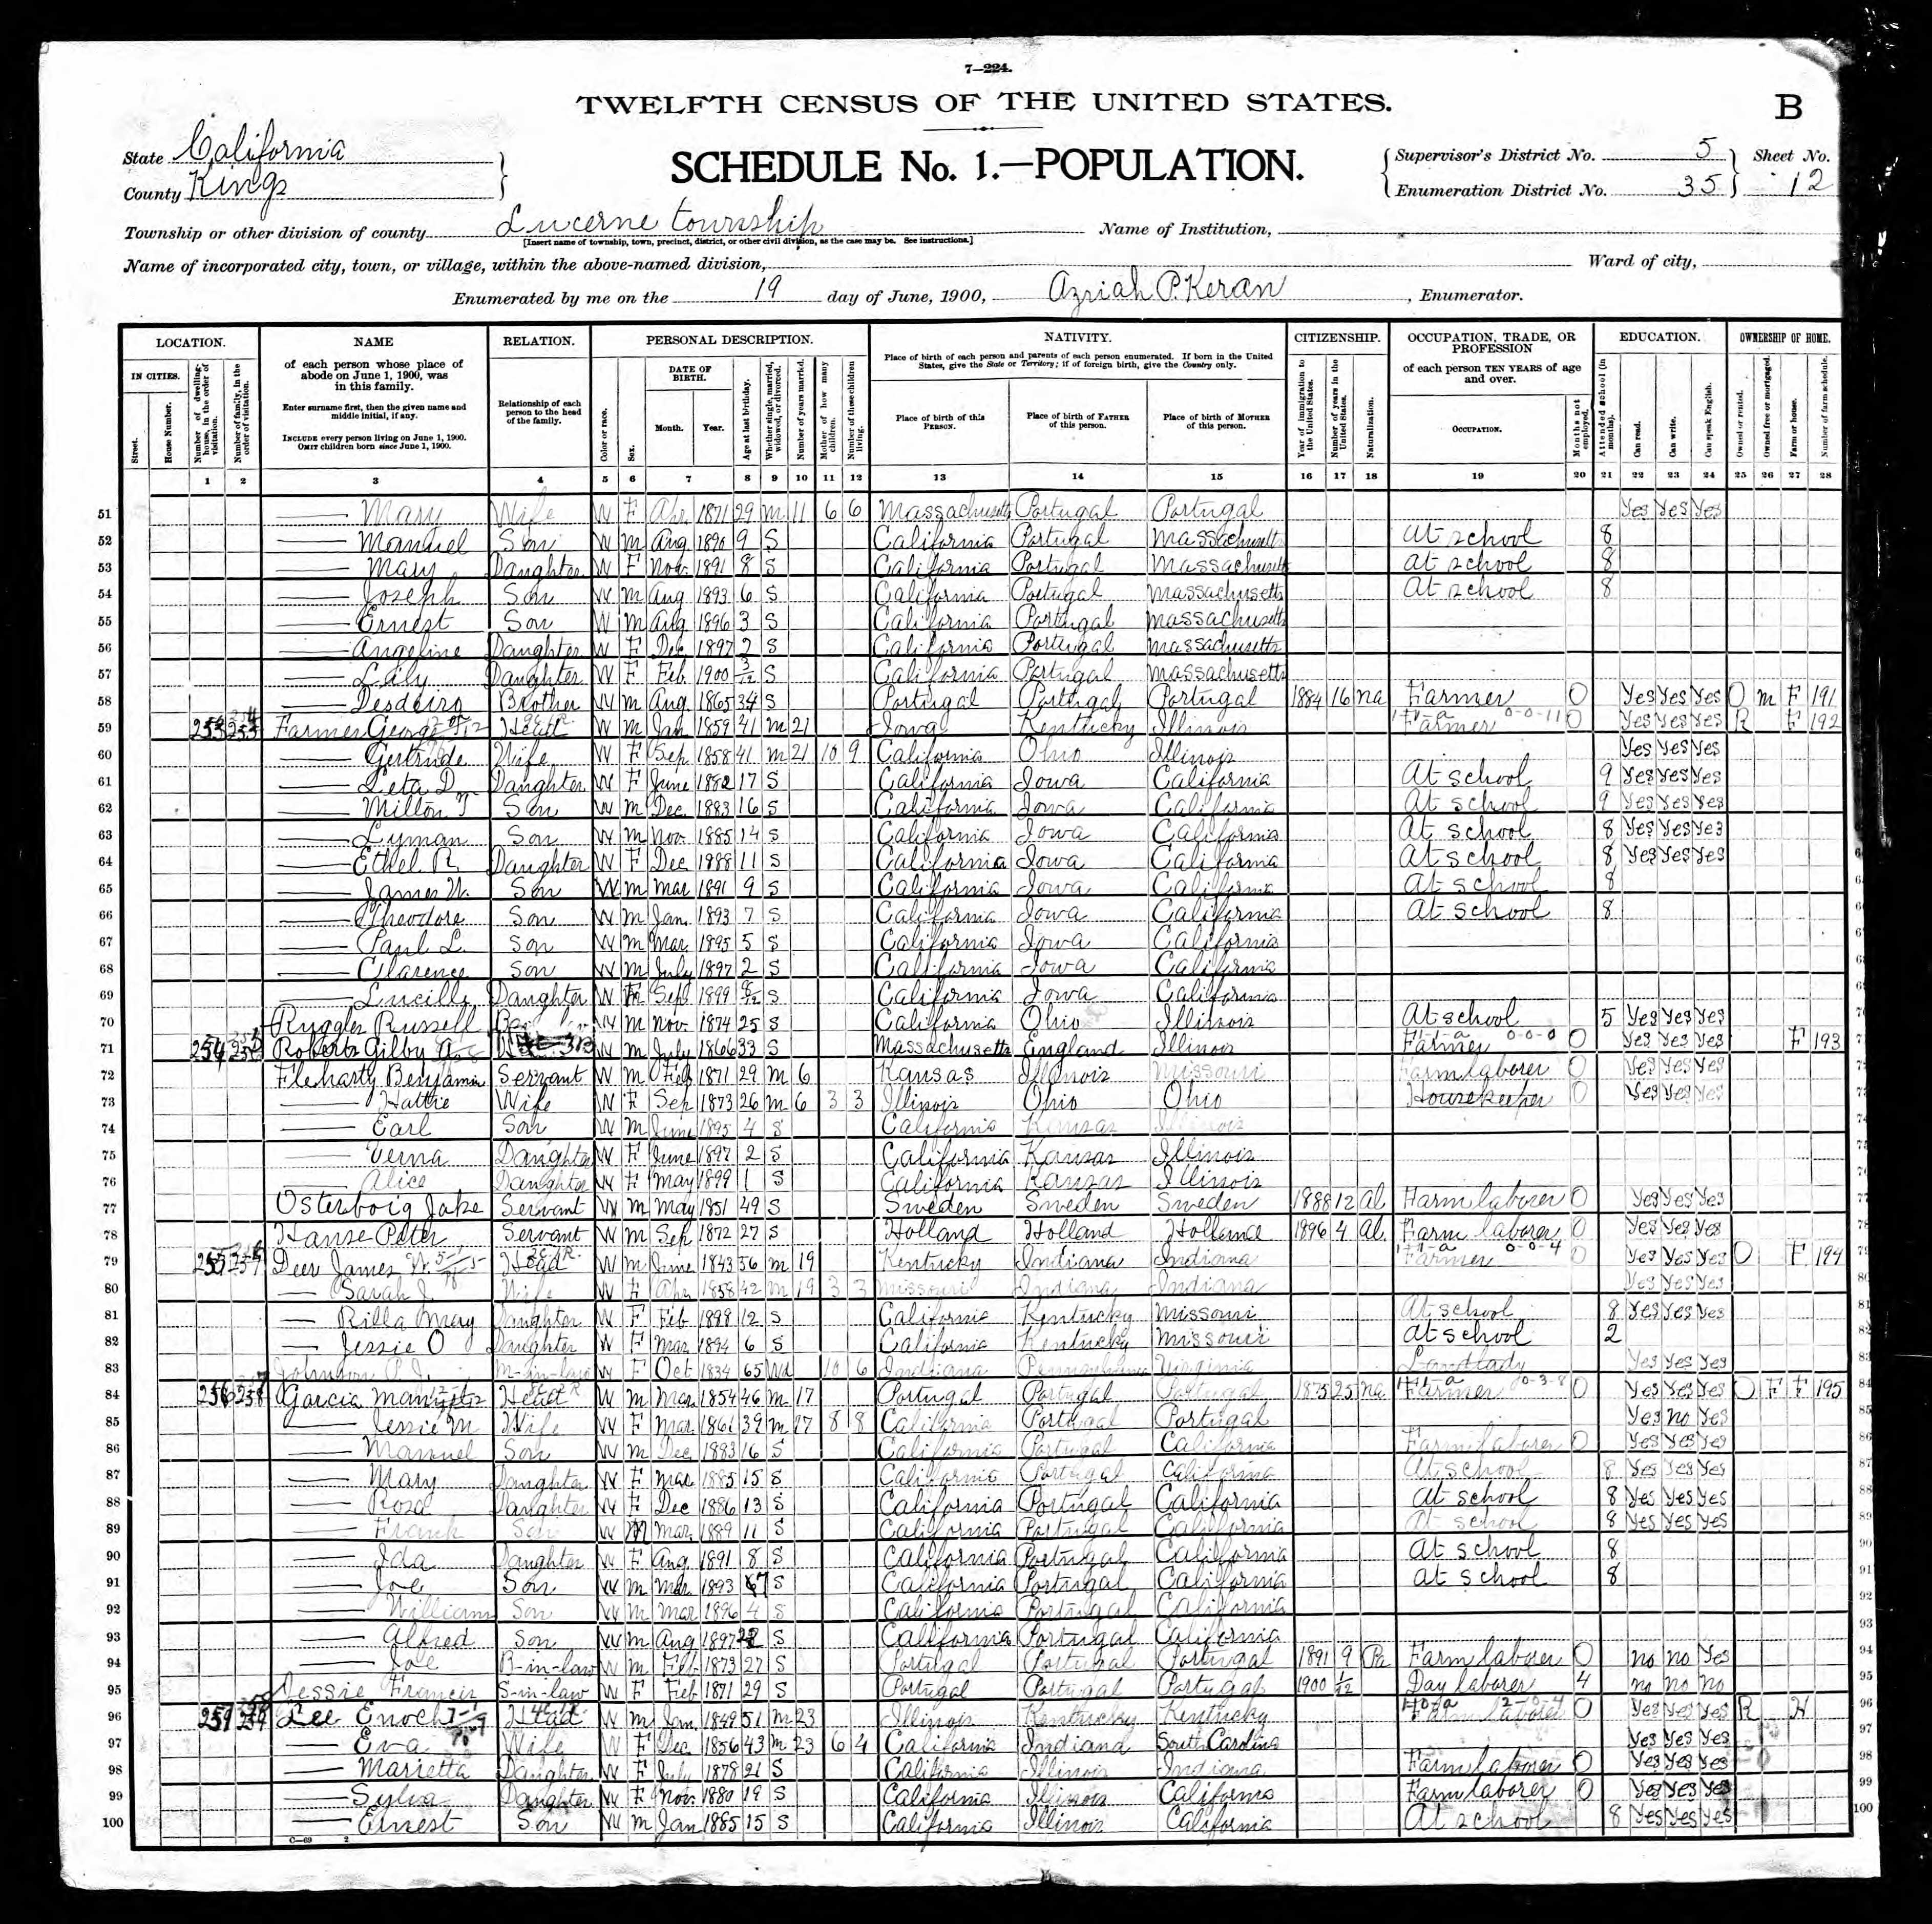 7—224.
TWELFTH CENSUS OF THE UNITED STATES.
B
State California
SCHEDULE No. 1.—POPULATION.
Supervisor's District No. 5 Sheet No.
County Kings
Enumeration District No. 35 12
Township or other division of county Lucerne township Name of Institution,
[Insert name of township, town, precinct, district, or other civil division, as the case may be. See instructions.]
Name of incorporated city, town, or village, within the above-named division, Ward of city,
Enumerated by me on the 19 day of June, 1900, Azriah P. Keran, Enumerator.
LOCATION. NAME RELATION. PERSONAL DESCRIPTION. NATIVITY. CITIZENSHIP. OCCUPATION, TRADE, OR PROFESSION EDUCATION. OWNERSHIP OF HOME.
IN CITIES. Street. House Number. Number of dwelling-house, in the order of visitation. Number of family, in the order of visitation.
of each person whose place of abode on June 1, 1900, was in this family.
Enter surname first, then the given name and middle initial, if any.
INCLUDE every person living on June 1, 1900. OMIT children born since June 1, 1900.
Relationship of each person to the head of the family.
Color or race. Sex. DATE OF BIRTH. Month. Year. Age at last birthday. Whether single, married, widowed, or divorced. Number of years married. Mother of how many children. Number of these children living.
Place of birth of each person and parents of each person enumerated. If born in the United States, give the State or Territory; if of foreign birth, give the Country only.
Place of birth of this PERSON. Place of birth of FATHER of this person. Place of birth of MOTHER of this person.
Year of immigration to the United States. Number of years in the United States. Naturalization.
of each person TEN YEARS of age and over.
OCCUPATION. Months not employed.
Attended school (in months). Can read. Can write. Can speak English.
Owned or rented. Owned free or mortgaged. Farm or house. Number of farm schedule.
1 2 3 4 5 6 7 8 9 10 11 12 13 14 15 16 17 18 19 20 21 22 23 24 25 26 27 28
51 Mary Wife W F Apr 1871 29 m 11 6 6 Massachusetts Portugal Portugal Yes Yes Yes
52 Manuel Son W m Aug 1890 9 S California Portugal Massachusetts At school 8
53 Mary Daughter W F Nov 1891 8 S California Portugal Massachusetts At school 8
54 Joseph Son W m Aug 1893 6 S California Portugal Massachusetts At school 8
55 Ernest Son W m Aug 1896 3 S California Portugal Massachusetts
56 Angeline Daughter W F Dec 1897 2 S California Portugal Massachusetts
57 Lily Daughter W F Feb 1900 3/12 S California Portugal Massachusetts
58 Brother W m Aug 1865 34 S Portugal Portugal Portugal 1884 16 na Farmer O Yes Yes Yes O m F 191
59 Farmer George Head W m Jan 1859 41 m 21 Iowa Kentucky Illinois Farmer 0-0-11 O Yes Yes Yes R F 192
60 Gertrude Wife W F Sep 1858 41 m 21 10 9 California Ohio Illinois Yes Yes Yes
61 Leta D Daughter W F June 1882 17 S California Iowa California At school 9 Yes Yes Yes
62 Milton T Son W m Dec 1883 16 S California Iowa California At school 9 Yes Yes Yes
63 Lyman Son W m Nov. 1885 14 S California Iowa California At school 8 Yes Yes Yes
64 Ethel R Daughter W F Dec 1888 11 S California Iowa California At school 8 Yes Yes Yes
65 James W. Son W m Mar 1891 9 S California Iowa California At school 8
66 Theodore Son W m Jan 1893 7 S California Iowa California At school 8
67 Paul L. Son W m Mar 1895 5 S California Iowa California
68 Clarence Son W m July 1897 2 S California Iowa California
69 Lucille Daughter W F Sep 1899 8/12 S California Iowa California
70 Ruggles Russell W m Nov 1874 25 S California Ohio Illinois At school 5 Yes Yes Yes
71 254 Roberts Gilby W m July 1866 33 S Massachusetts England Illinois Farmer 0-0-0 O Yes Yes Yes F 193
72 Fleharty Benjamin Servant W m Feb 1871 29 m 6 Kansas Illinois Missouri Farm laborer O Yes Yes Yes
73 Hattie Wife W F Sep 1873 26 m 6 3 3 Illinois Ohio Ohio Housekeeper O Yes Yes Yes
74 Earl Son W m June 1895 4 S California Kansas Illinois
75 Verna Daughter W F June 1897 2 S California Kansas Illinois
76 Alice Daughter W F May 1899 1 S California Kansas Illinois
77 Osterboig Jake Servant W m May 1851 49 S Sweden Sweden Sweden 1888 12 Al Farm laborer O Yes Yes Yes
78 Hanse Peter Servant W m Sep 1872 27 S Holland Holland Holland 1896 4 Al Farm laborer O Yes Yes Yes
79 Deer James W. Head W m June 1843 56 m 19 Kentucky Indiana Indiana Farmer 0-0-4 O Yes Yes Yes O F 194
80 Sarah J. Wife W F Apr 1858 42 m 19 3 3 Missouri Indiana Indiana Yes Yes Yes
81 Rilla May Daughter W F Feb 1888 12 S California Kentucky Missouri At school 8 Yes Yes Yes
82 Jessie O Daughter W F Mar 1894 6 S California Kentucky Missouri At school 2
83 Johnson P. J. M-in-law W F Oct 1834 65 Wd 10 6 Indiana Pennsylvania Virginia Landlady Yes Yes Yes
84 Garcia Head W m Mar 1854 46 m 17 Portugal Portugal Portugal 1875 25 na Farmer 0-3-8 O Yes Yes Yes O F F 195
85 Jessie M Wife W F Mar 1861 39 m 17 8 8 California Portugal Portugal Yes no Yes
86 Manuel Son W m Dec 1883 16 S California Portugal California Farm laborer O Yes Yes Yes
87 Mary Daughter W F Mar 1885 15 S California Portugal California At school 8 Yes Yes Yes
88 Rosa Daughter W F Dec 1886 13 S California Portugal California At school 8 Yes Yes Yes
89 Frank Son W M Mar 1889 11 S California Portugal California At school 8 Yes Yes Yes
90 Ida Daughter W F Aug 1891 8 S California Portugal California At school 8
91 Joe Son W m Mar 1893 7 S California Portugal California At school 8
92 William Son W m Mar 1896 4 S California Portugal California
93 Alfred Son W m Aug 1897 2 S California Portugal California
94 Joe B-in-law W m Feb 1873 27 S Portugal Portugal Portugal 1891 9 Pa Farm laborer O no no Yes
95 Jessie Francis S-in-law W F Feb 1871 29 S Portugal Portugal Portugal 1900 1/12 Day laborer 4 no no no
96 Lee Enoch Head W m Jan 1849 51 m 23 Illinois Kentucky Kentucky Farm laborer O Yes Yes Yes R H
97 Eva Wife W F Dec 1856 43 m 23 6 4 California Indiana South Carolina Yes Yes Yes
98 Marietta Daughter W F July 1878 21 S California Illinois Indiana Farm laborer O Yes Yes Yes
99 Sylva Daughter W F Nov. 1880 19 S California Illinois California Farm laborer O Yes Yes Yes
100 Ernest Son W m Jan 1885 15 S California Illinois California At school 8 Yes Yes Yes
C—69 2